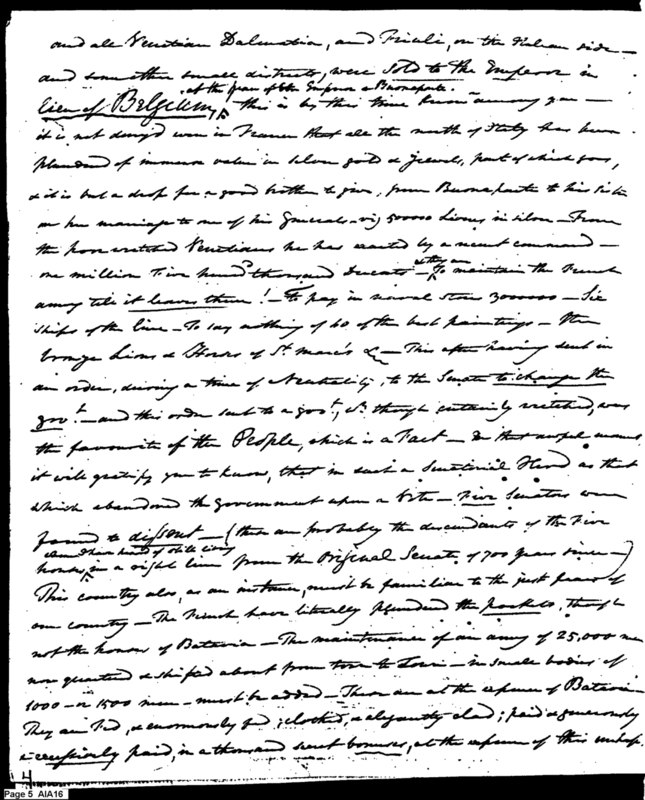 and all Venetian Dalmatia, and Friuli, on the Italian side —
and some other small districts, were sold to the Emperor in
at the peace of the Emperor & Buonaparte.
lieu of Belgium, this is by this time known among you —
it is not deny'd even in France that all the north of Italy has been
plundered of immense value in silver gold & Jewels, part of which goes,
& it is but a drop for a good brother to give, from Buonaparte to his sister
on her marriage to one of his Generals — viz 500000 Livres in silver — From
the poor wretched Venetians he has exacted by a recent command —
one million Five hund'd thousand Ducats — to maintain the French
army till it leaves them! — To pay in naval stores 3000000 — Six
ships of the line — To say nothing of 40 of the best paintings — the
bronze Lions & Horses of St. Marc's &c — This after having sent in
an order, during a time of Neutrality, to the Senate to change the
gov't. — and this order sent to a gov't, wh. though certainly wretched, was
the favourite of the People, which is a Fact — in that
it will gratify you to know, that in such a Senatorial Herd as that
which abandoned the government upon a Vote — Five Senators were
found to dissent — (these are probably the descendants of the Five
houses, in a right line from the Original Senate of 700 years since —)
This country also, as an instance, must be familiar to the just fears of
our country — The French have literally plundered the pockets, though
not the houses of Batavia — The maintenance of an army of 25,000 men
now quartered & shifted about from town to town — in small bodies of
1000 — or 1500 men — must be added — These are at the expence of Batavia —
They are Fed, & enormously fed; clothed, & elegantly clad; paid & generously
& excessively paid, in a thousand secret bonuses, at the expence of this unhap
4
Page 5 AIA16